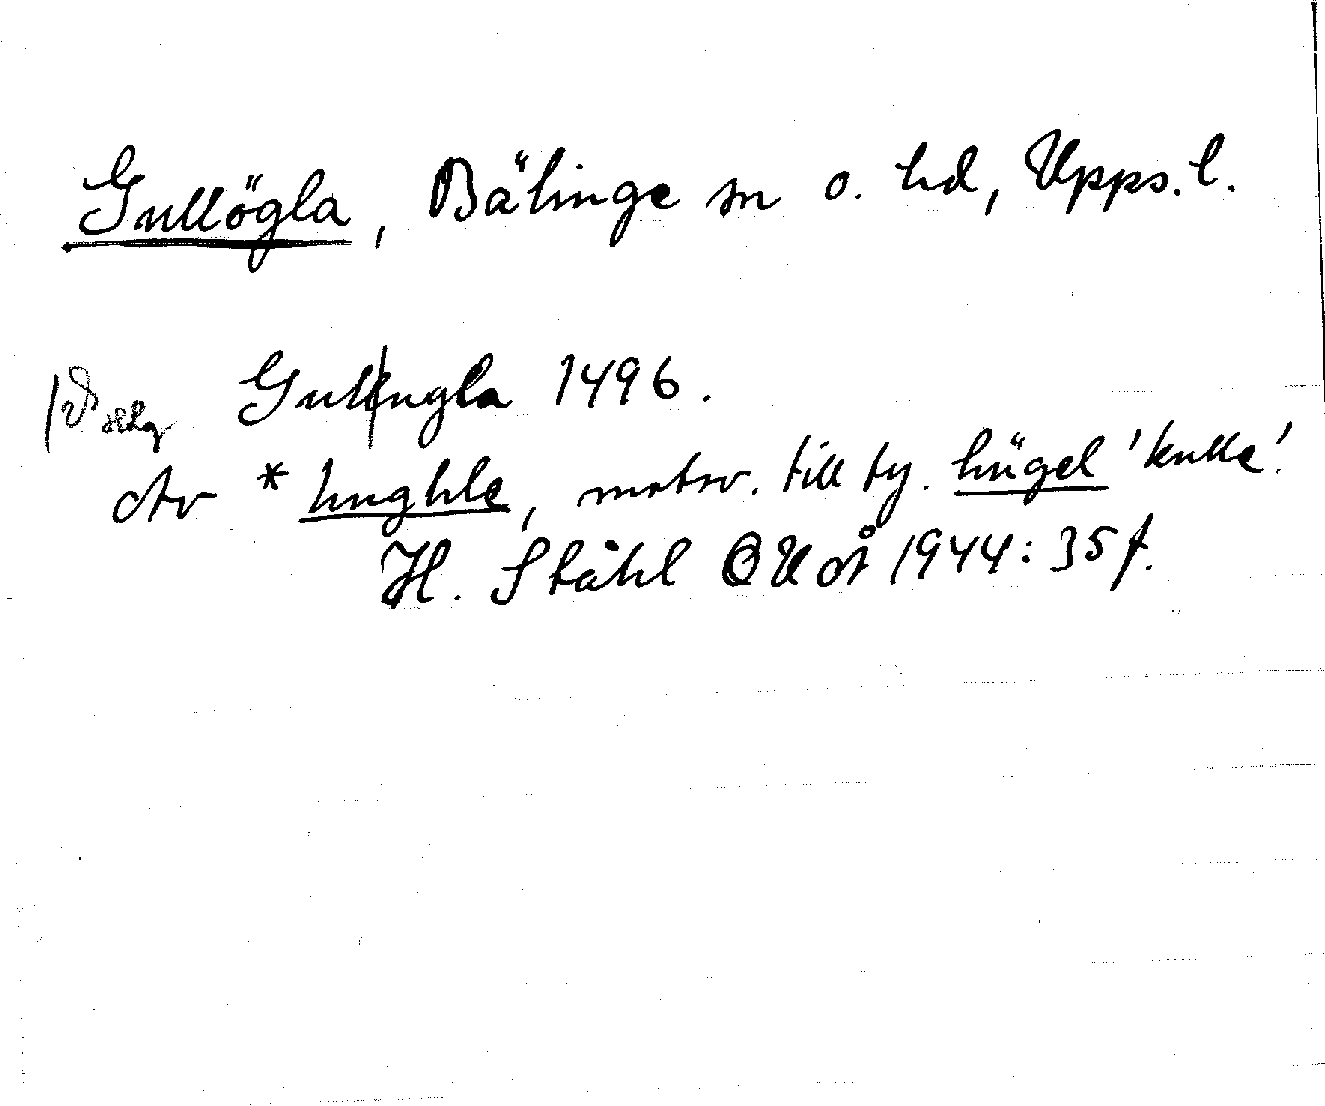 Gullögla, Bälinge sn o. hd, Upps. l.
Gullugla 1496.
Av *hughle, motsv. till ty. hügel 'kulle'.
H. Ståhl OUÅ 1944:35 f.